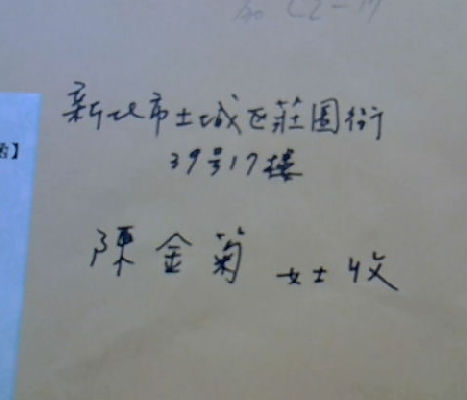 新北市土城区莊園街
39号17樓
陳金菊 女士 收